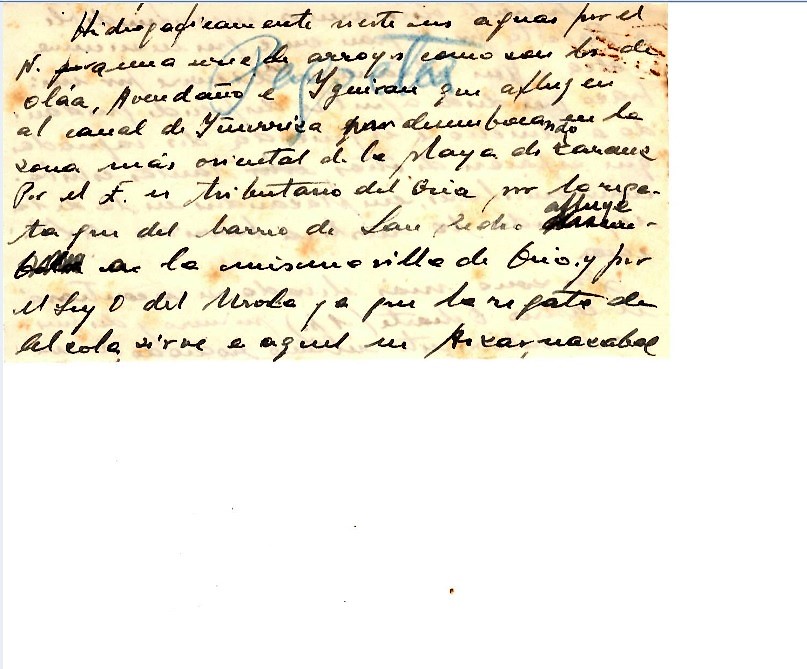 Hidrogaficamente vierte sus aguas por el
N. por una serie de arroyos como son los de
oláa, Avendaño e Yguiran que afluyen
al canal de Ynurriza desembocando en la
zona más oriental de la playa de Zarauz
Por el E. es tributario del Oria, por la rega-
ta que del barrio de San Pedro afluye
en la misma villa de Orio. y por
el S y O del Urola ya que la regata de
Alzola sirve a aquel en Aizarnazabal
Pagoetas